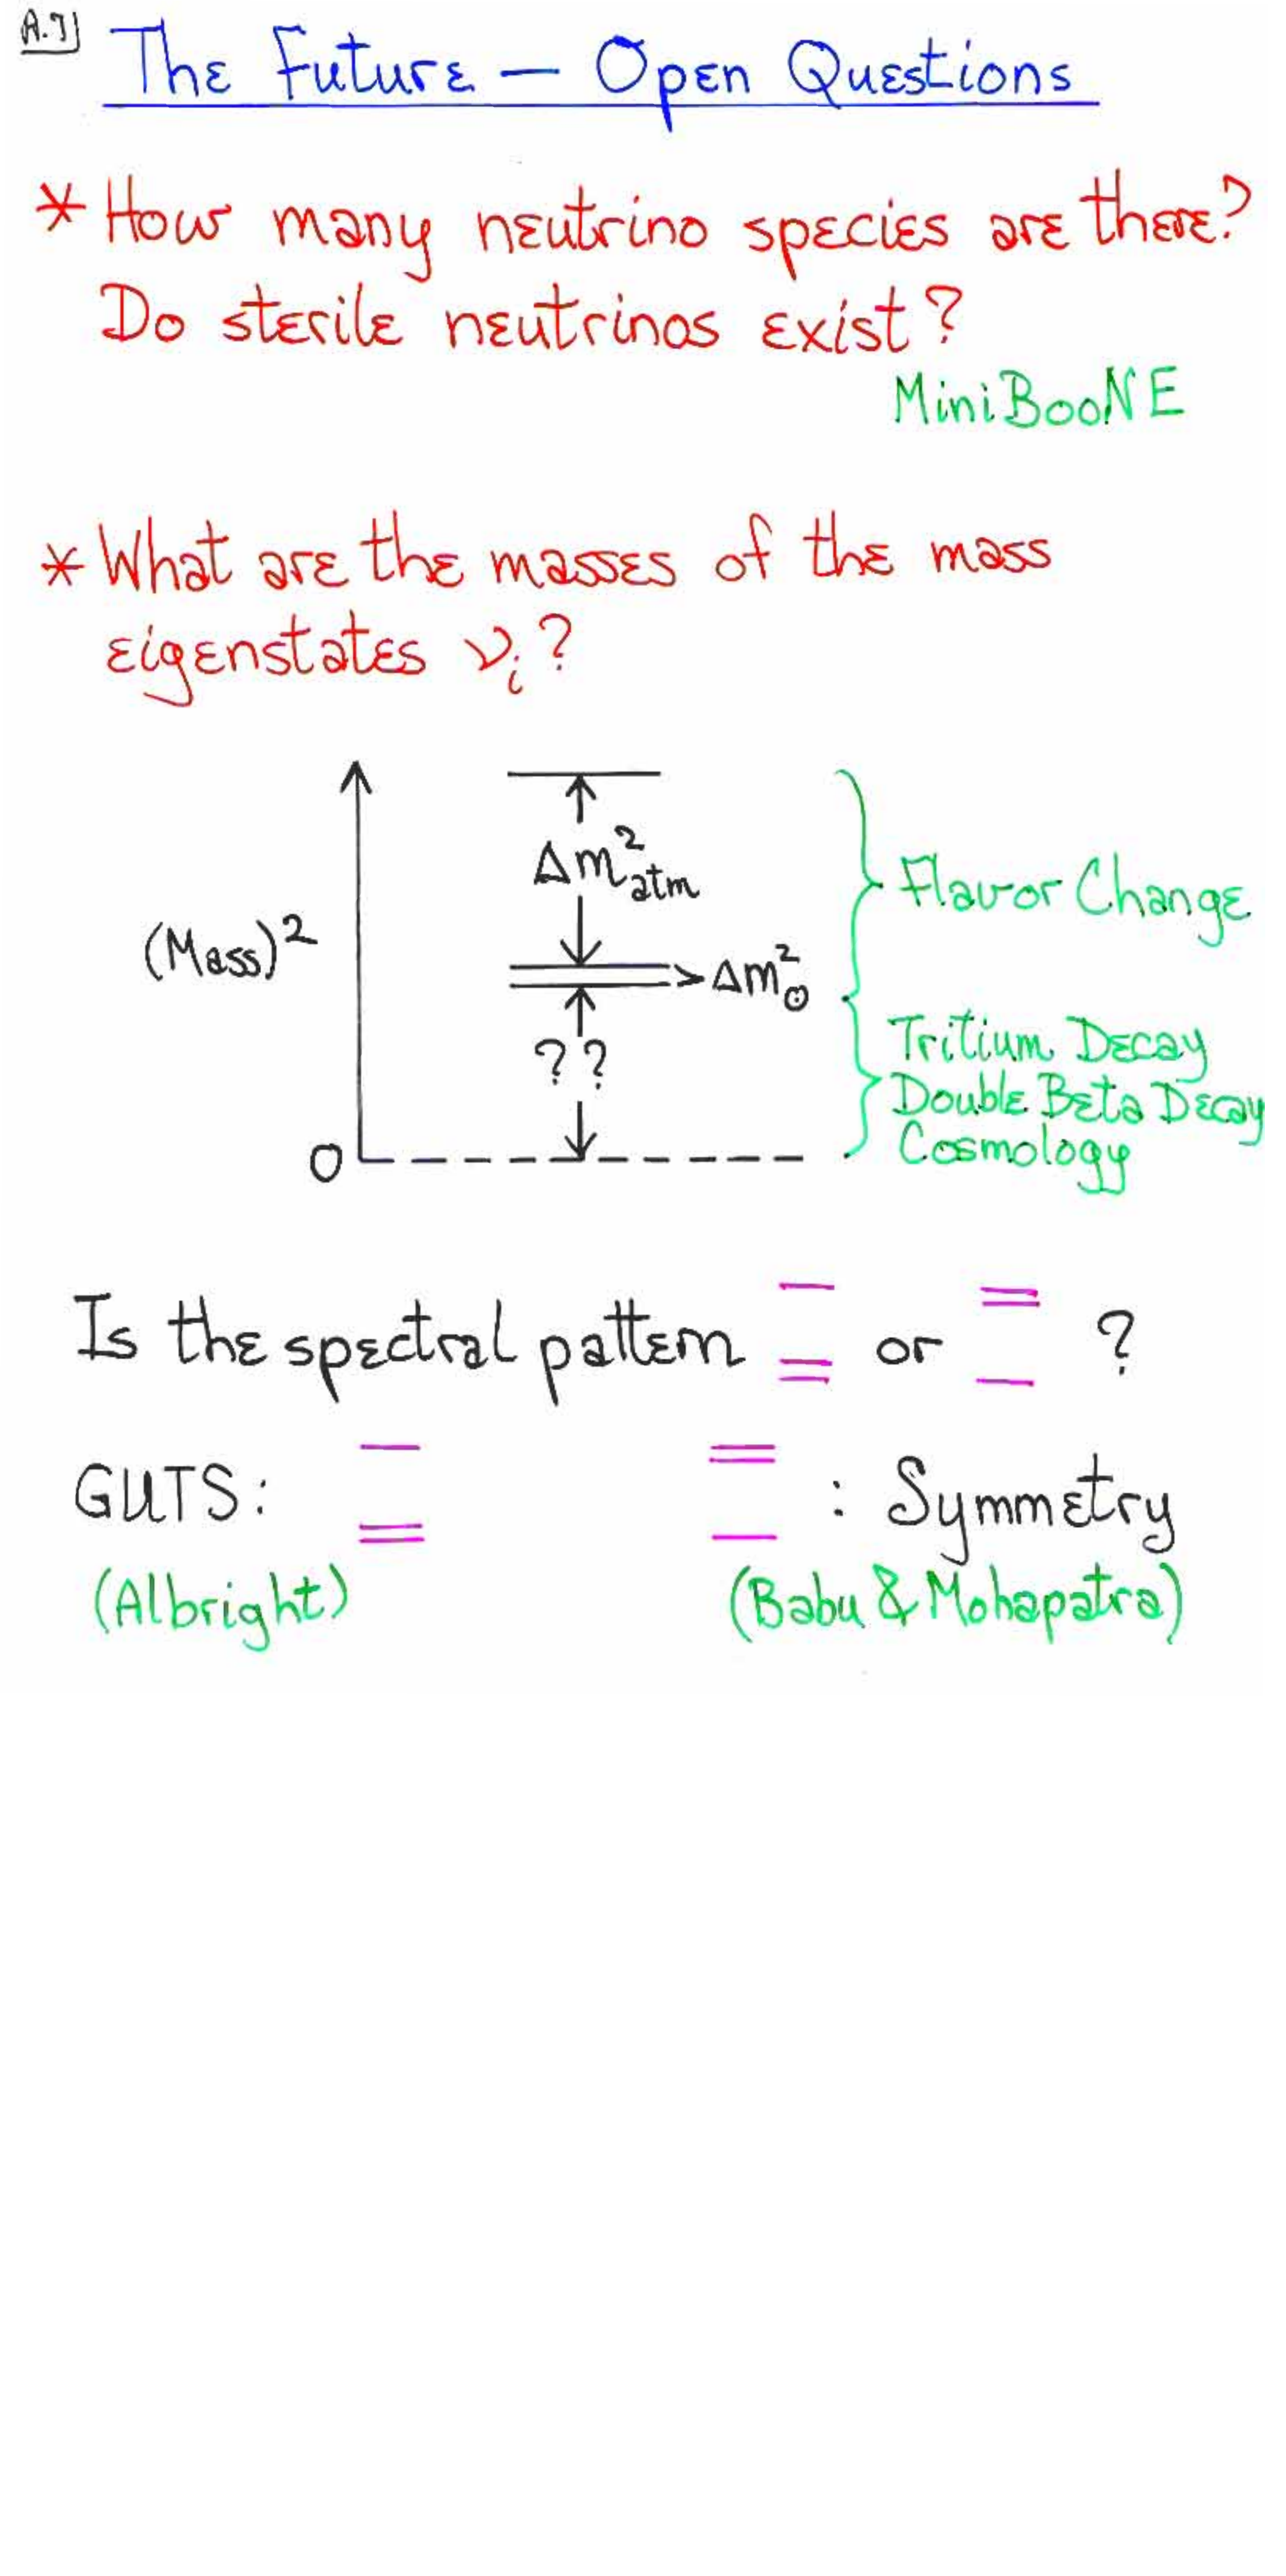 A.7]
The Future — Open Questions
* How many neutrino species are there?
Do sterile neutrinos exist?
MiniBooNE
* What are the masses of the mass
eigenstates νᵢ?
Δm²atm
Flavor Change
(Mass)²
Δm²⊙
??
Tritium Decay
Double Beta Decay
Cosmology
0
Is the spectral pattern or ?
GUTS: : Symmetry
(Albright) (Babu & Mohapatra)